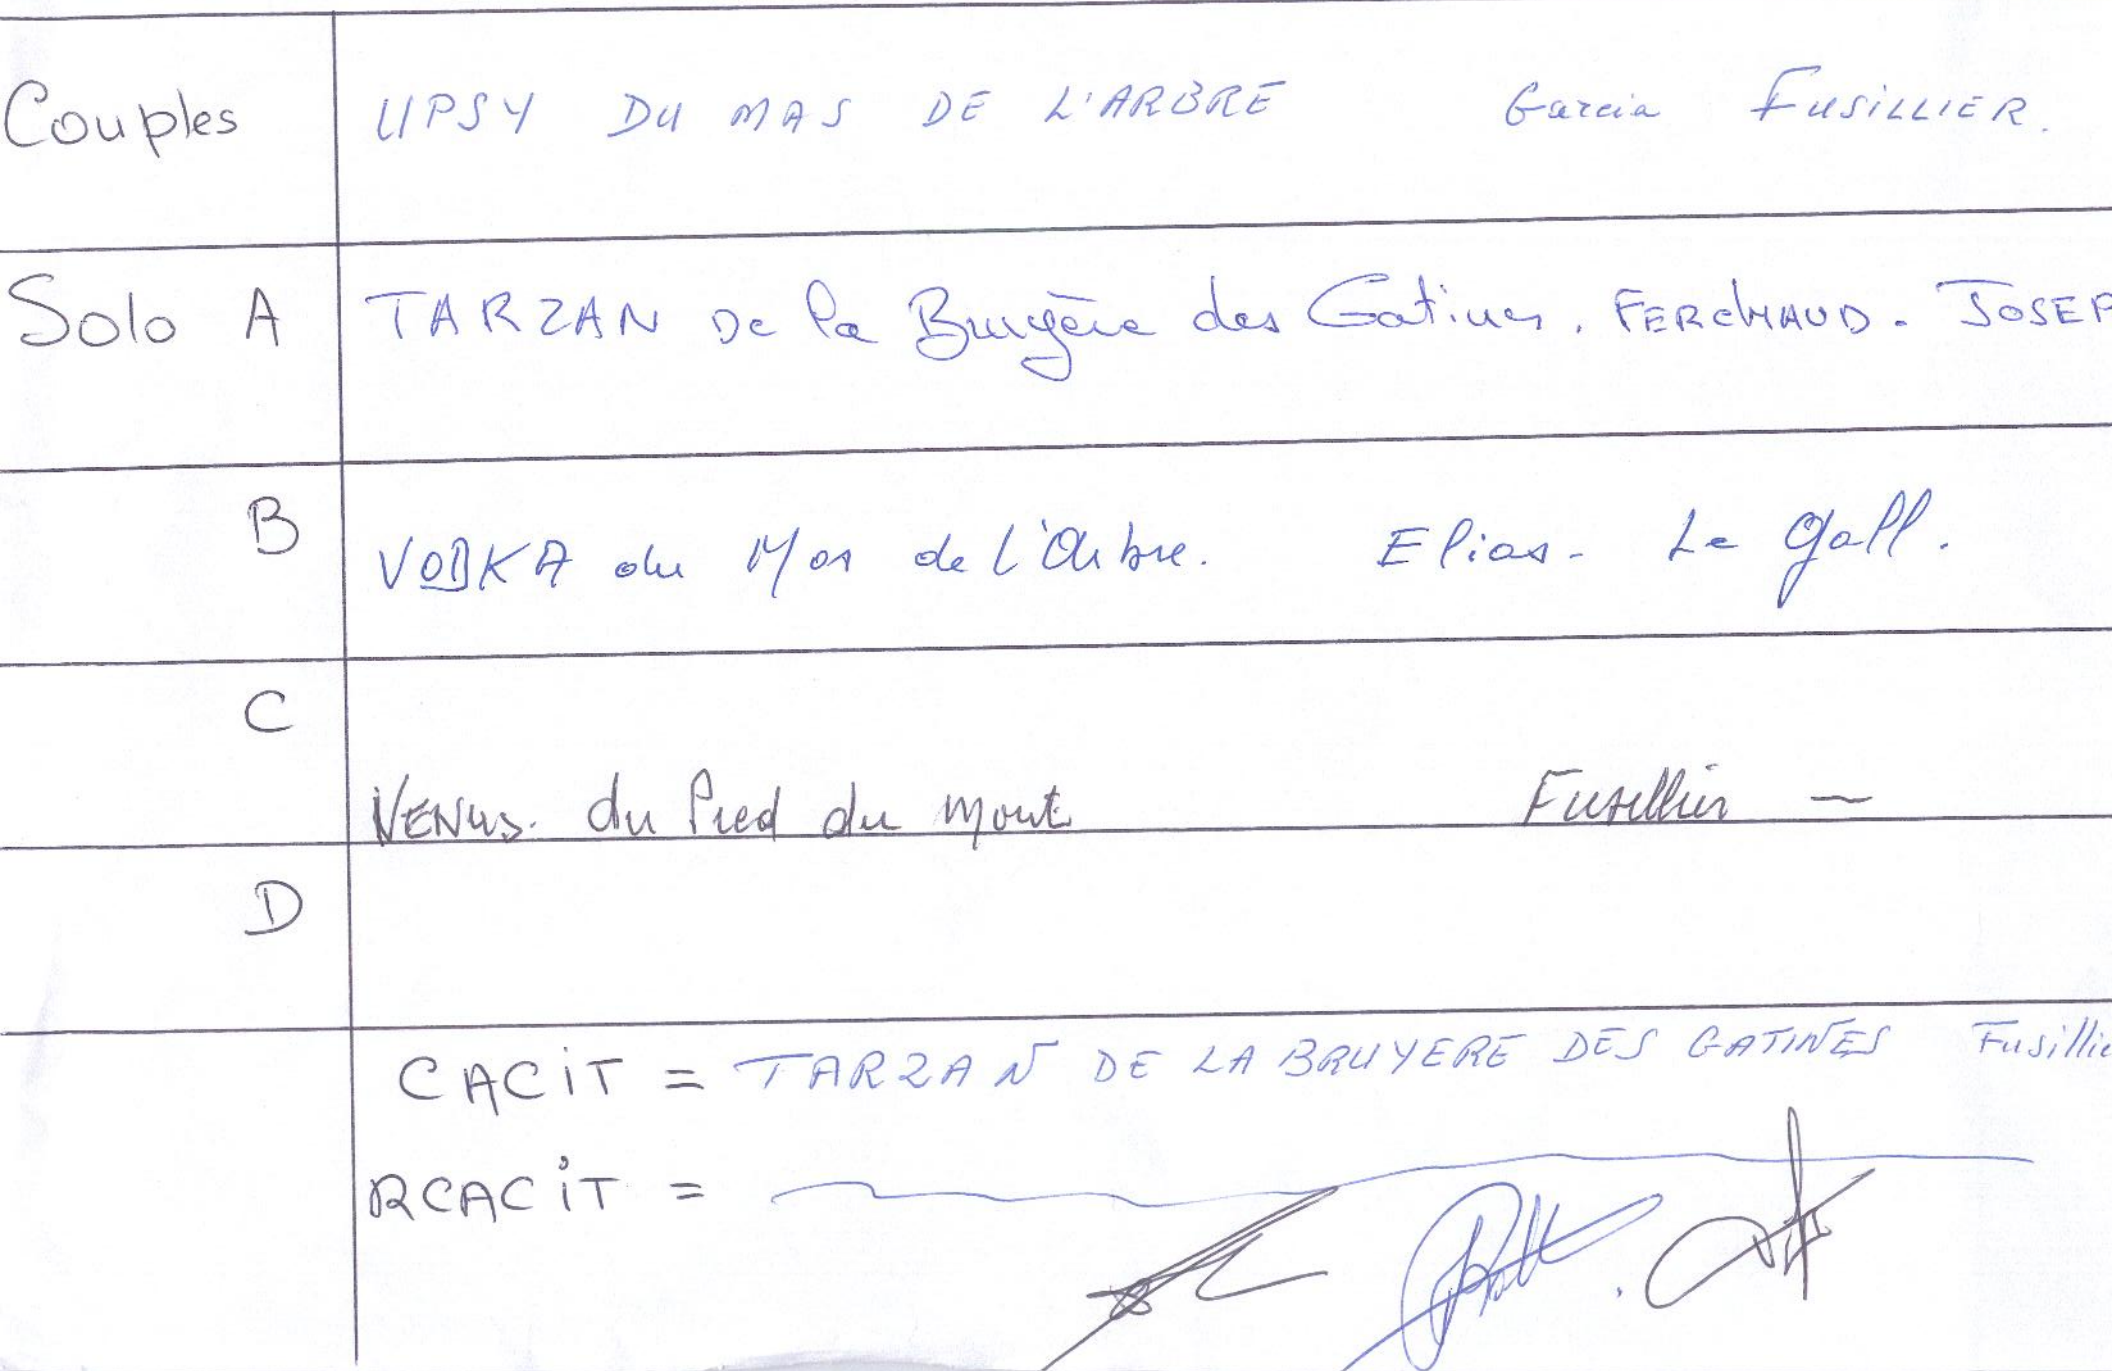 Couples UPSY DU MAS DE L'ARBRE Garcia FUSILLIER.
Solo A TARZAN De la Bruyère des Gatines. FERCHAUD. JOSEP
B VODKA du Mas de l'Arbre. Elias - Le Gall.
C
VENUS. du Pied du Mont Fusillier —
D
CACiT = TARZAN DE LA BRUYERE DES GATINES Fusillie
RCACiT =